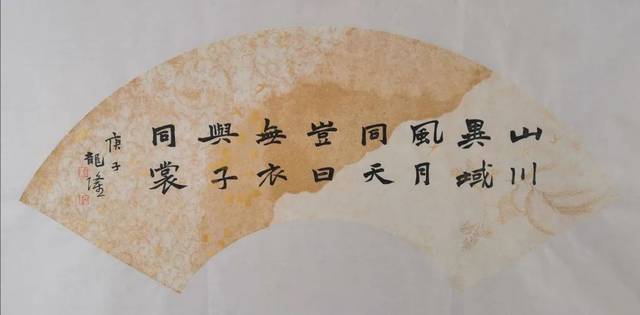 山川
異域
風月
同天
豈曰
無衣
與子
同裳
庚子
龍隆